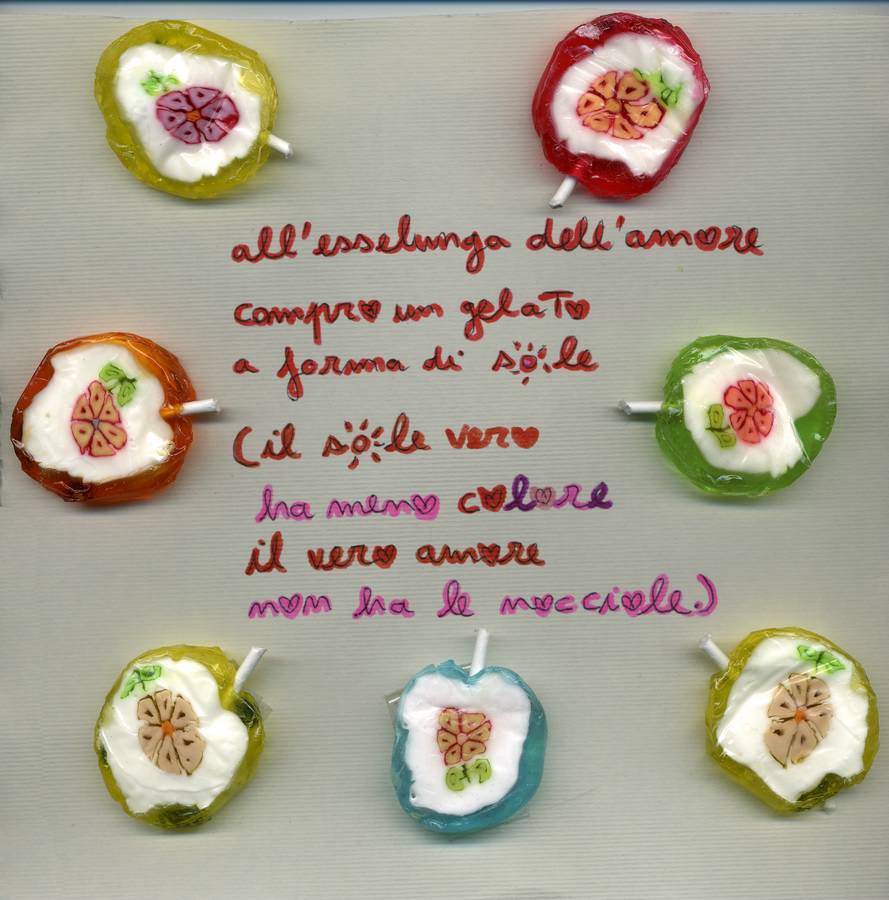 all'esselunga dell'amore
compro un gelato
a forma di sole
(il sole vero
ha meno colore
il vero amore
non ha le nocciole.)